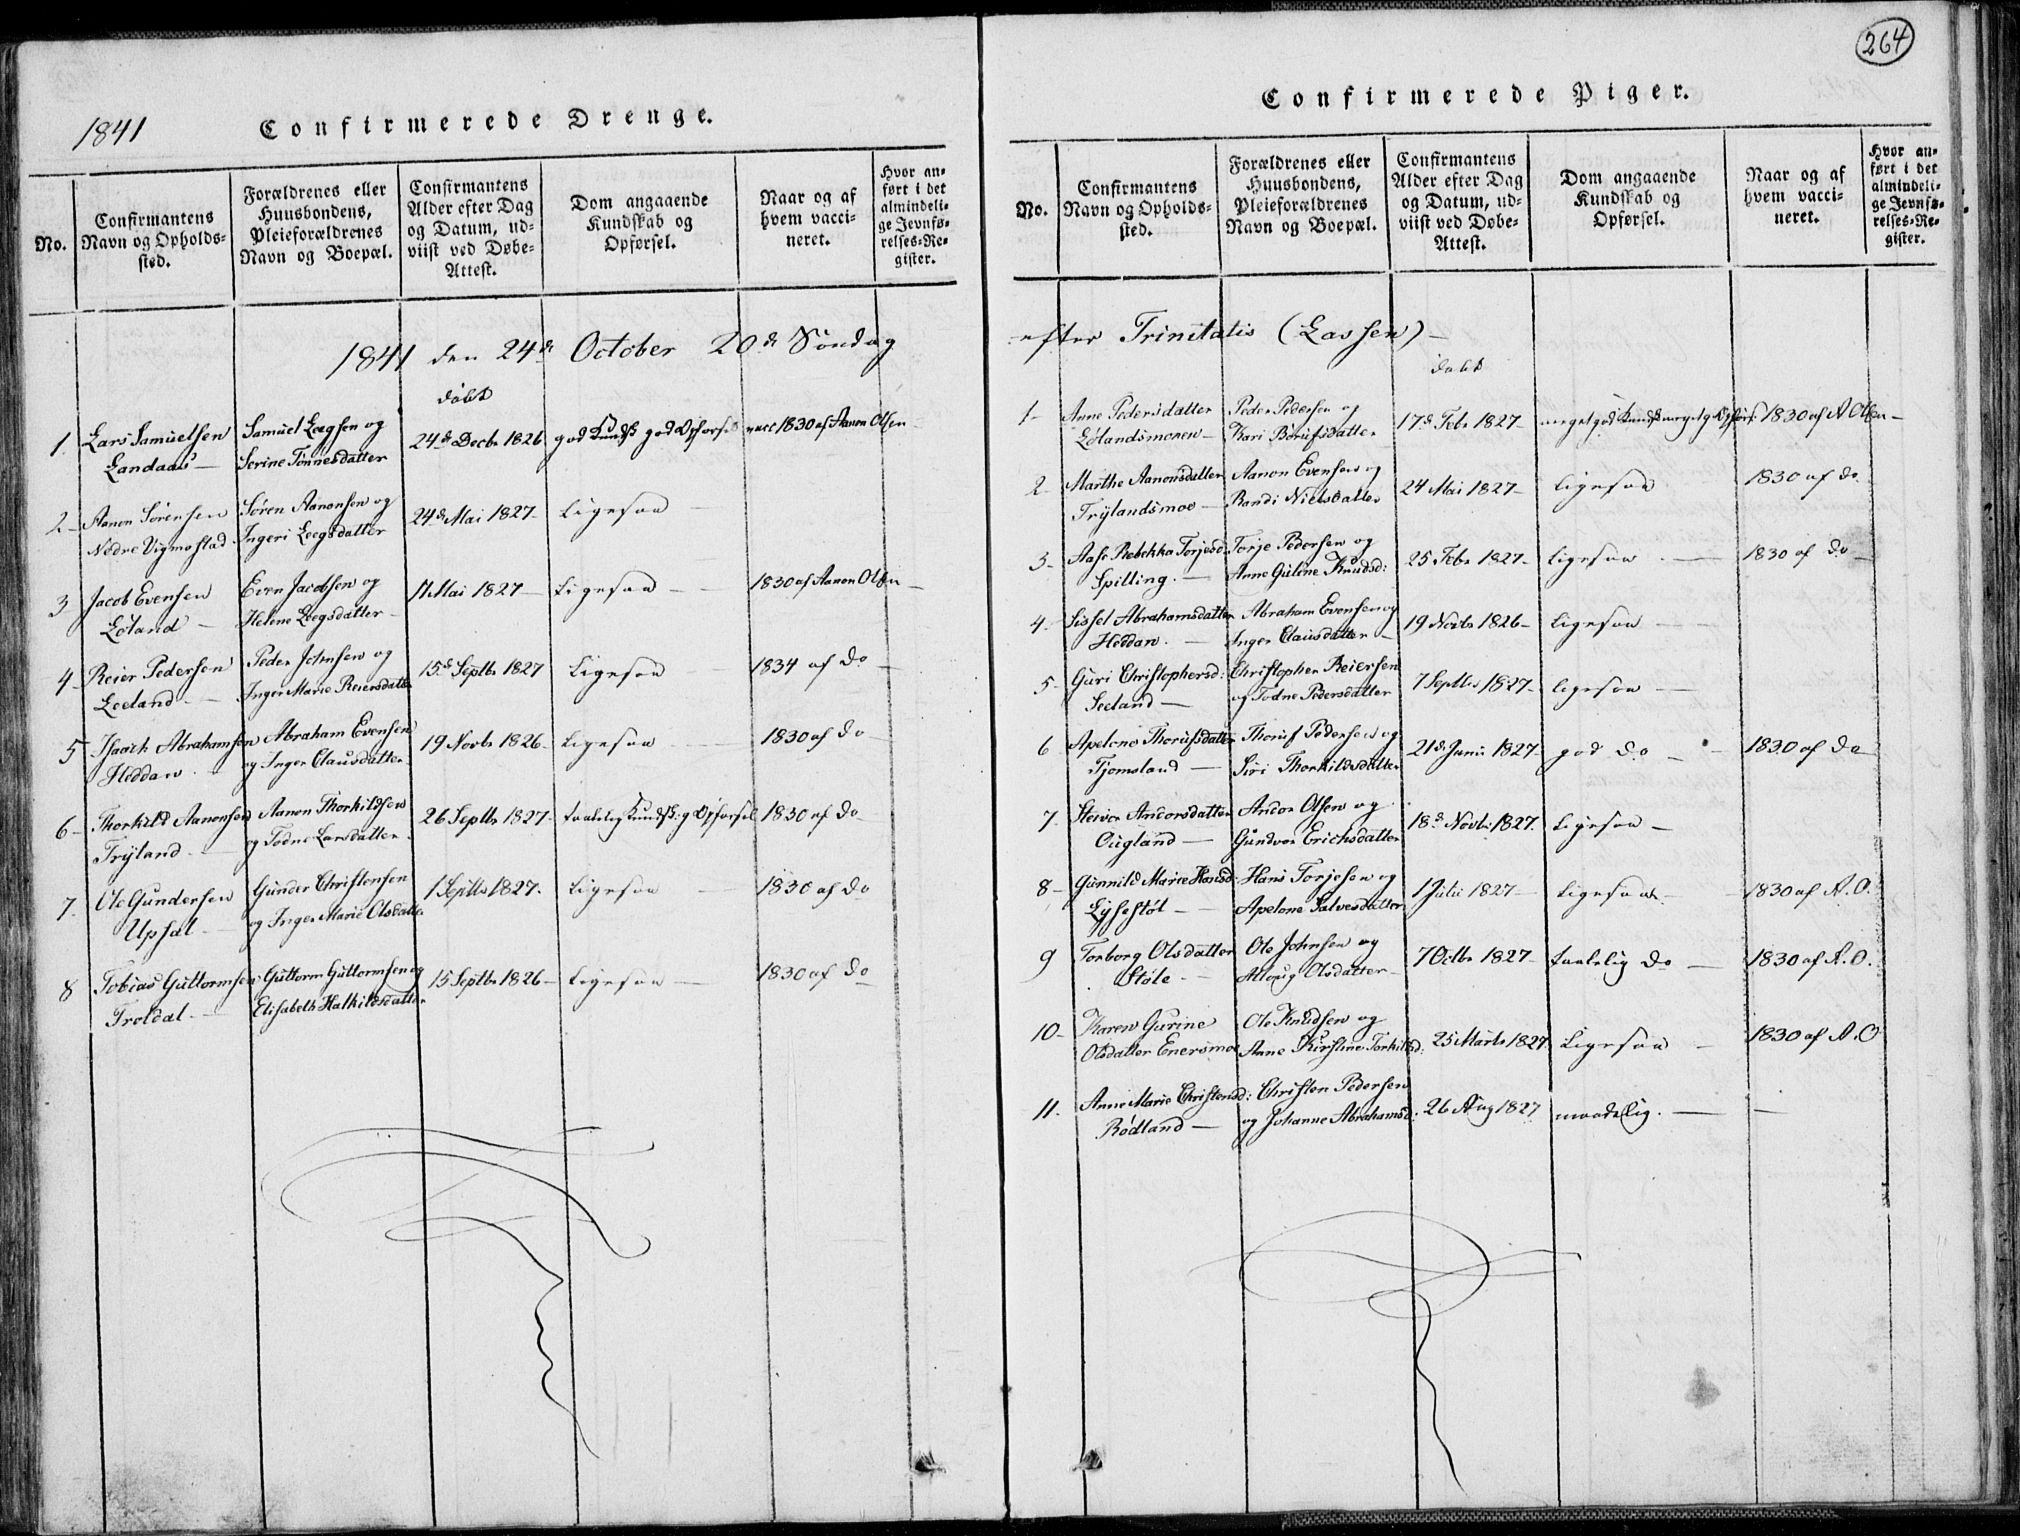 264
1841
Confirmerede Drenge.
No.
Confirmantens
Navn og Opholds-
sted.
Forældrenes eller
Huusbondens,
Pleieforældrenes
Navn og Boepæl.
Confirmantens
Alder efter Dag
og Datum, ud-
viist ved Døbe-
Attest.
Dom angaaende
Kundskab og
Opførsel.
Naar og af
hvem vacci-
neret.
Hvor an-
ført i det
almindeli-
ge Jevnfø-
relses-Re-
gister.
1841 den 24de October 20de Söndag
döbt
1. Lars Samuelsen Samuel Leegsen og 24de Decbr 1826 god Kundsk god Opförsel vacc 1830 af Aanon Olsen
Landaas Serine Tönnesdatter
2 Aanon Sörensen Sören Aanonsen og 24de Mai 1827 Ligesaa
Nedre Vigmostad Ingeri Leegsdatter
3 Jacob Evensen Even Jacobsen og 11 Mai 1827 Ligesaa 1830 af Aanon Olsen
Löland Helene Leegsdatter
4 Reier Pedersen Peder Johnsen og 15de Septbr 1827 Ligesaa 1834 af do
Leeland Inger Marie Reiersdatter
5 Isaach Abrahamsen Abraham Evensen 19 Novbr 1826 Ligesaa 1830 af do
Heddan og Inger Clausdatter
6 Thorkild Aanonsen Aanon Thorkildsen 26 Septbr 1827 taalelig Kundsk: g Opförsel 1830 af do
Trÿland og Todne Larsdatter
7. Ole Gundersen Gunder Christensen 1 Septbr 1827. Ligesaa 1830 af do
Upsal og Inger Marie Olsdatter
8 Tobias Guttormsen Guttorm Guttormsen og 15 Septbr 1826 Ligesaa 1830 af do
Troldal Elisabeth Halkildsdatter
Confirmerede Piger.
No.
Confirmantens
Navn og Opholds-
sted.
Forældrenes eller
Huusbondens,
Pleieforældrenes
Navn og Boepæl.
Confirmantens
Alder efter Dag
og Datum, ud-
viist ved Døbe-
Attest.
Dom angaaende
Kundskab og
Opførsel.
Naar og af
hvem vacci-
neret.
Hvor an-
ført i det
almindeli-
ge Jevnfø-
relses-Re-
gister.
efter Trinitatis (Lassen)
döbt
1 Anne Pedersdatter Peder Pedersen og 17de Febr 1827 meget god Kundsk meget g Opförs 1830 af A Olsen
Lölandsmonen Kari
2 Marthe Aanonsdatter Aanon Evensen og 24 Mai 1827 Ligesaa 1830 af do
Trÿlandsmoe Randi Nielsdatter
3 Aase Rebekka Torjesd: Torje Pedersen og 25 Febr 1827 ligesaa 1830 af do
Spilling. Anne Guline Knudsd:
4 Sissel Abrahamsdatter Abraham Evensen og 19 Novbr 1826 ligesaa
Heddan. Inger Clausdatter
5 Guri Christophersd: Christopher Reiersen 7 Septbr 1827 ligesaa
og Todne Pedersdatter
6 Apelone Thorufsdatter Thoruf Pedersen og 21de Junii 1827 god do 1830 af do
Tjomsland Siri Thorkildsdatter
7 Andorsdatter Andor Olsen og 18de Novbr 1827. Ligesaa
Ougland Gundvor Erichsdatter
8 Gunnild Marie Hansd: Hans Torjesen og 1 Julii 1827 Ligesaa 1830 af A.O.
Lÿsestöl Apelone Salvesdatter
9 Torborg Olsdatter Ole Johnsen og 7 Octbr 1827 taalelig do 1830 af A.O.
Stöle Olsdatter
10 Karen Gurine Ole Knudsen og 25 Marts 1827 Ligesaa 1830 af A.O
Olsdatter Enersmoe Anne Kirstine Torkildsd:
11. Anne Marie Christensd: Christen Pedersen 26 Aug 1827 maadelig.
Rödland og Johanne Abrahamsd: